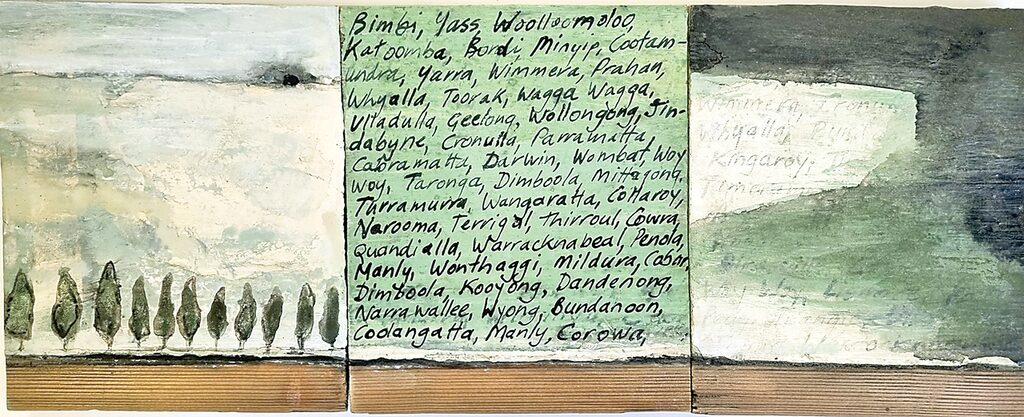 Bimbi, Yass, Woolloomoloo,
Katoomba, Bondi, Minyip, Cootam-
undra, Yarra, Wimmera, Prahan,
Whyalla, Toorak, Wagga Wagga,
Ulladulla, Geelong, Wollongong, Jin-
dabyne, Cronulla, Parramatta,
Cabramatta, Darwin, Wombat, Woy
Woy, Taronga, Dimboola, Mittagong,
Turramurra, Wangaratta, Collaroy,
Narooma, Terrigal, Thirroul, Cowra,
Quandialla, Warracknabeal, Penola,
Manly, Wonthaggi, Mildura, Cobar,
Dimboola, Kooyong, Dandenong,
Narrawallee, Wyong, Bundanoon,
Coolangatta, Manly, Corowa,
Wimmera,
Whyalla,
Kingaroy,